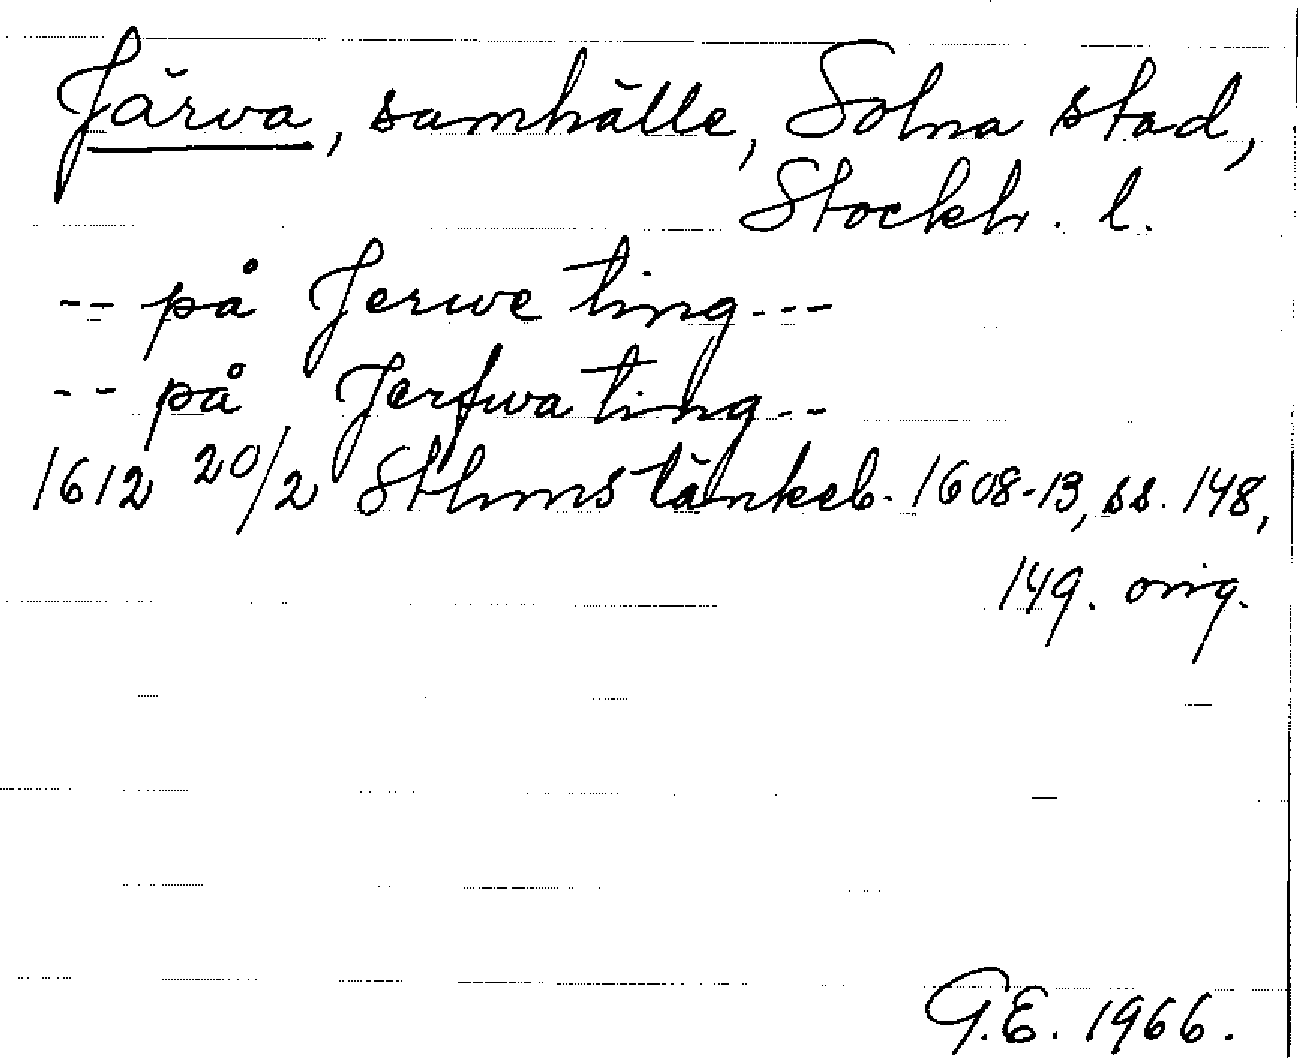 Järva, samhälle, Solna stad,
Stockh. l.
-- på Jerwe ting ---
-- på Jerfwa ting --
1612 20/2 Sthms tänkeb. 1608-13, ss. 148,
149. orig.
G.E. 1966.